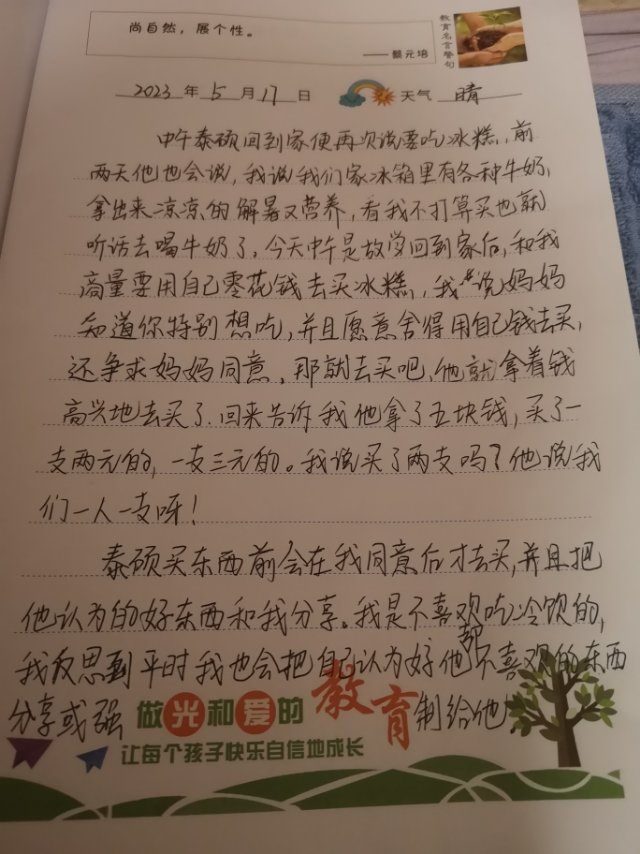 尚自然，展个性。
——蔡元培
教育名言警句
2023年5月17日 天气 晴
中午泰硕回到家便再次说要吃冰糕，前
两天他也会说，我说我们家冰箱里有各种牛奶，
拿出来凉凉的解暑又营养，看我不打算买也就
听话去喝牛奶了。今天中午是放学回到家后，和我
商量要用自己零花钱去买冰糕，我说妈妈
知道你特别想吃，并且愿意舍得用自己钱去买，
还争求妈妈同意，那就去买吧，他就拿着钱
高兴地去买了.回来告诉我他拿了五块钱，买了一
支两元的，一支三元的。我说买了两支吗？他说我
们一人一支呀！
泰硕买东西前会在我同意后才去买，并且把
他认为的好东西和我分享。我是不喜欢吃冷饮的，
我反思到平时我也会把自己认为好他都不喜欢的东西
分享或强制给他！
做光和爱的教育
让每个孩子快乐自信地成长